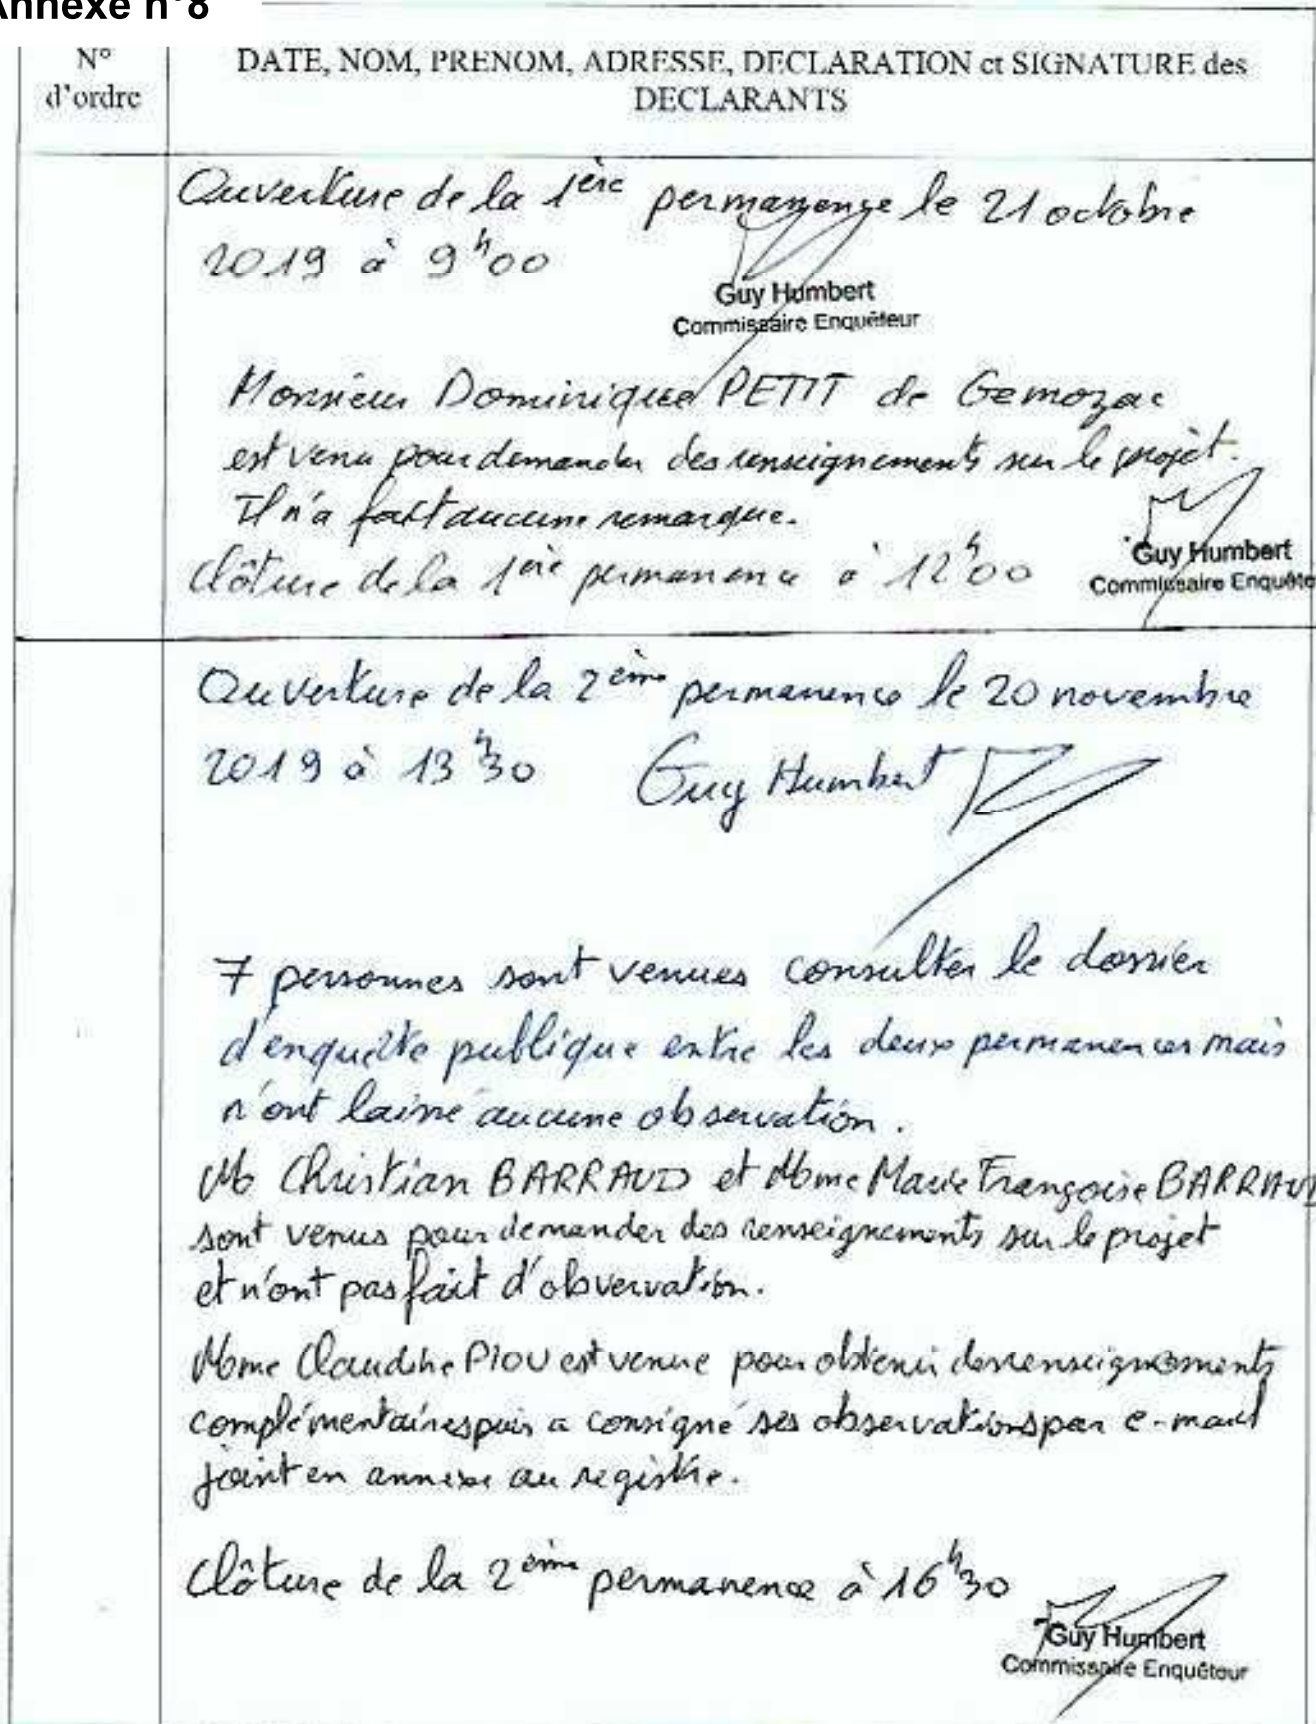 Annexe n°8
N°
d'ordre
DATE, NOM, PRENOM, ADRESSE, DECLARATION et SIGNATURE des
DECLARANTS
Ouverture de la 1ère permanence le 21 octobre
2019 à 9h00
Guy Humbert
Commissaire Enquêteur
Monsieur Dominique PETIT de Gemozac
est venu pour demander des renseignements sur le projet.
Il n'a fait aucune remarque.
Clôture de la 1ère permanence à 12h00
Guy Humbert
Commissaire Enquête
Ouverture de la 2ème permanence le 20 novembre
2019 à 13h30 Guy Humbert
7 personnes sont venues consulter le dossier
d'enquête publique entre les deux permanences mais
n'ont laissé aucune observation.
Mo Christian BARRAUD et Mme Marie Françoise BARRAUD
sont venus pour demander des renseignements sur le projet
et n'ont pas fait d'observation.
Mme Claudine PIOU est venue pour obtenir des renseignements
complémentaires puis a consigné ses observations par e-mail
joint en annexe au registre.
Clôture de la 2ème permanence à 16h30
Guy Humbert
Commissaire Enquêteur